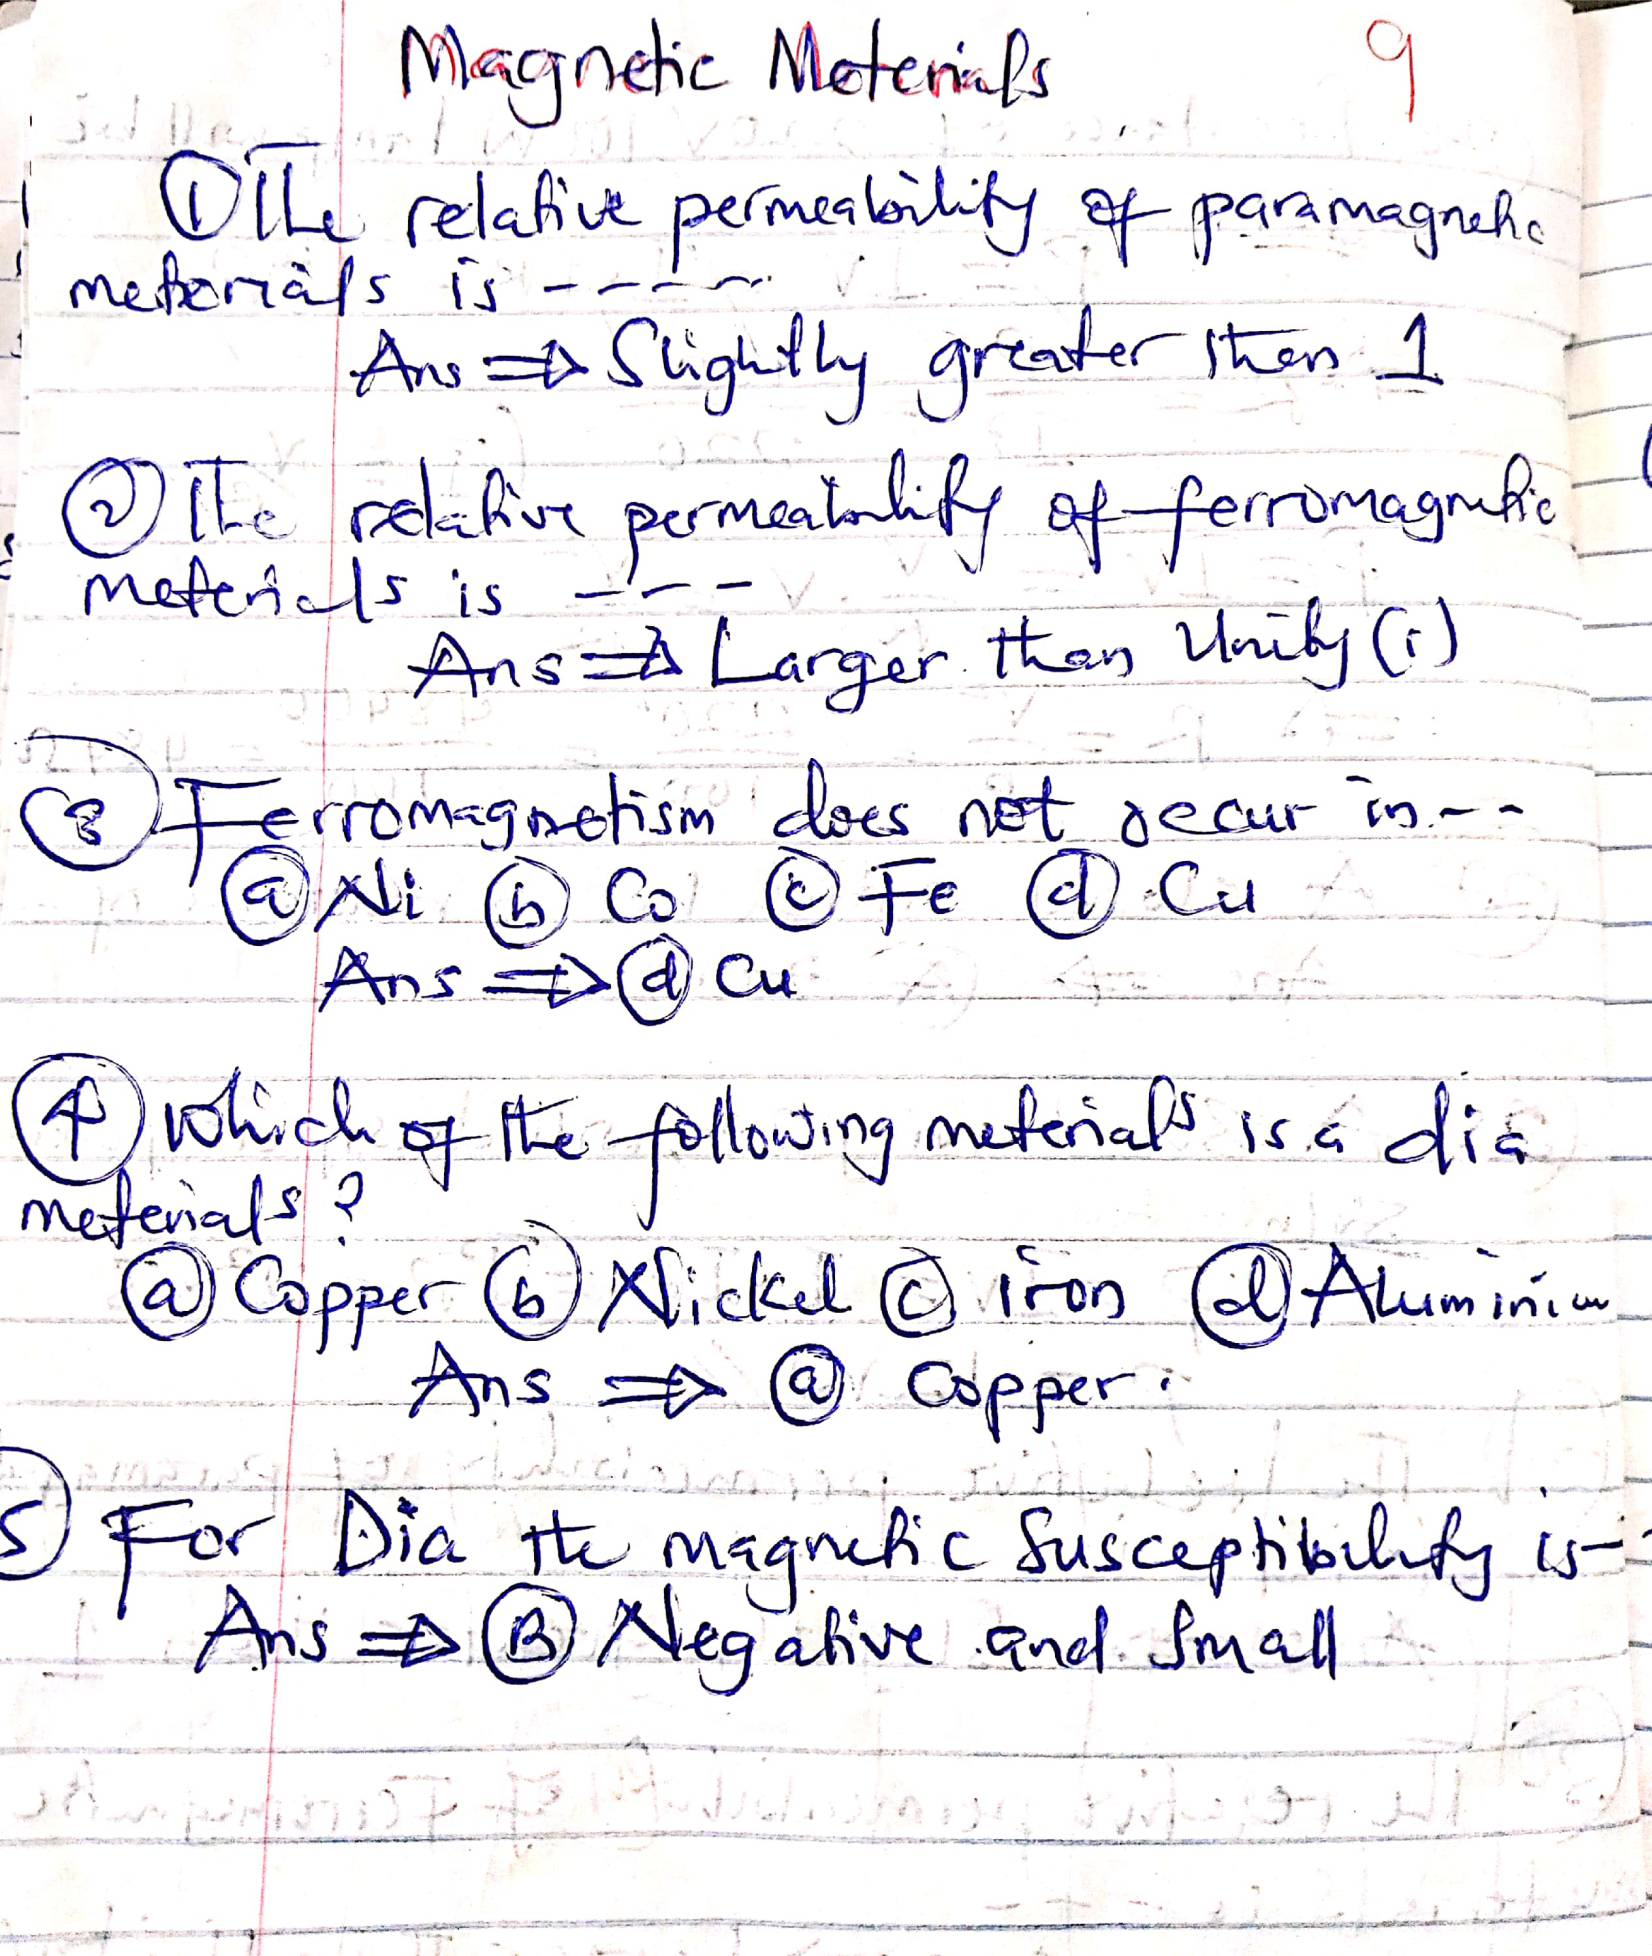 Magnetic Materials 9
① The relative permeability of paramagnetic
meterials is -----
Ans ⇒ Slightly greater than 1
② The relative permeability of ferromagnetic
meterials is ----
Ans ⇒ Larger than Unity (1)
③ Ferromagnetism does not occur in --
ⓐ Ni ⓑ Co ⓒ Fe ⓓ Cu
Ans ⇒ ⓓ Cu
④ Which of the following meterials is a dia
meterials?
ⓐ Copper ⓑ Nickel ⓒ iron ⓓ Aluminium
Ans ⇒ ⓐ Copper.
5) For Dia the magnetic Susceptibility is -
Ans ⇒ Ⓑ Negative and Small